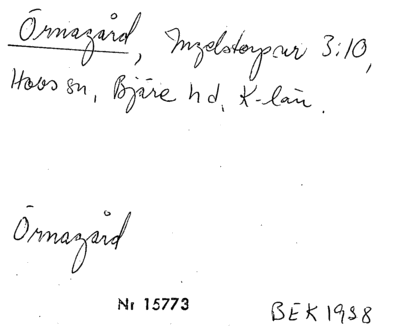 Örnagård, Ingelstorpsur 3:10,
Hovs sn, Bjäre hd, K-län.
Örnagård
Nr 15773
BEK 1938